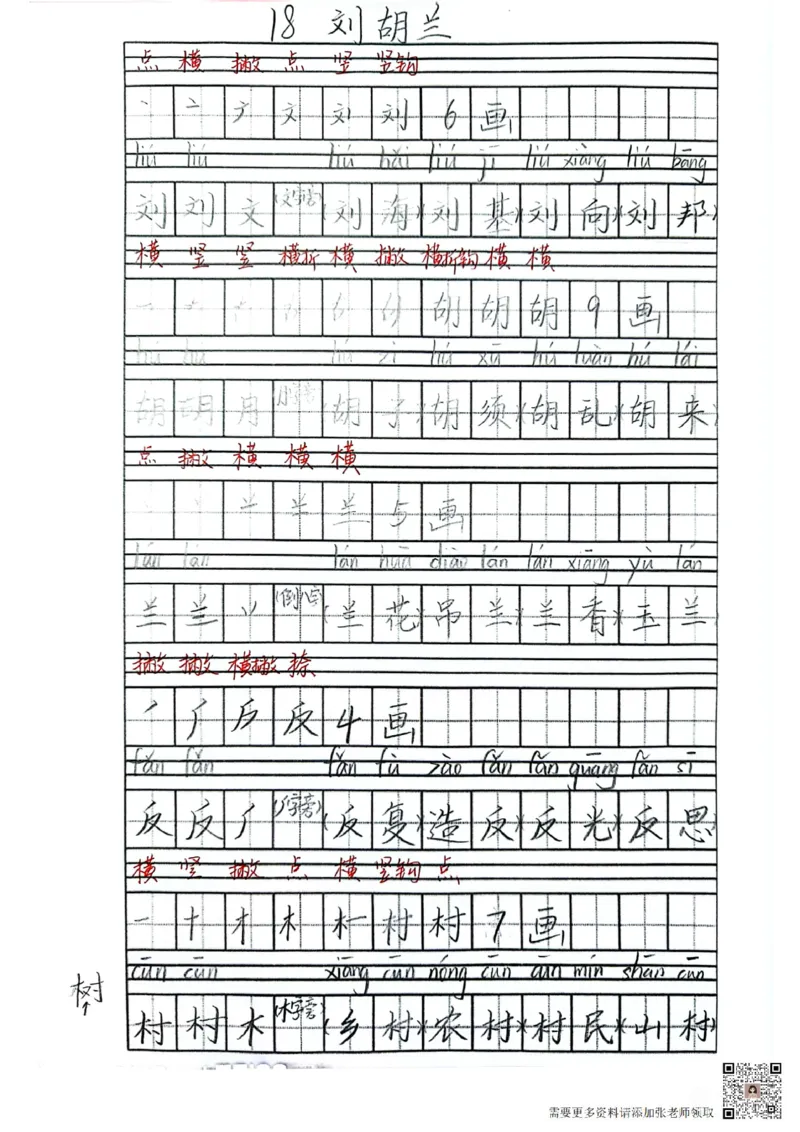 18 刘胡兰
点 横 撇 点 竖 竖钩
丶 亠 ナ 文 刘 刘 6 画
liú liú liú hǎi liú jī liú xiàng liú bāng
刘 刘 文 (文字旁) (刘 海) (刘 基) (刘 向) (刘 邦)
横 竖 竖 横折 横 撇 横折钩 横 横
一 十 胡 胡 胡 9 画
hú hú hú zi hú xū hú luàn hú lái
胡 胡 月 (月字旁) (胡 子) (胡 须) (胡 乱) (胡 来)
点 撇 横 横 横
兰 5 画
lán lán lán huā diào lán lán xiāng yù lán
兰 兰 丷 (倒八) (兰 花) (吊 兰) (兰 香) (玉 兰)
撇 撇 横撇 捺
丿 厂 反 4 画
fǎn fǎn fǎn fù zào fǎn fǎn guāng fǎn sī
反 反 厂 (厂字旁) (反 复) (造 反) (反 光) (反 思)
横 竖 撇 点 横 竖钩 点
一 十 才 木 村 村 7 画
cūn cūn xiāng cūn nóng cūn cūn mín shān cūn
树
村 村 木 (木字旁) (乡 村) (农 村) (村 民) (山 村)
需要更多资料请添加张老师领取